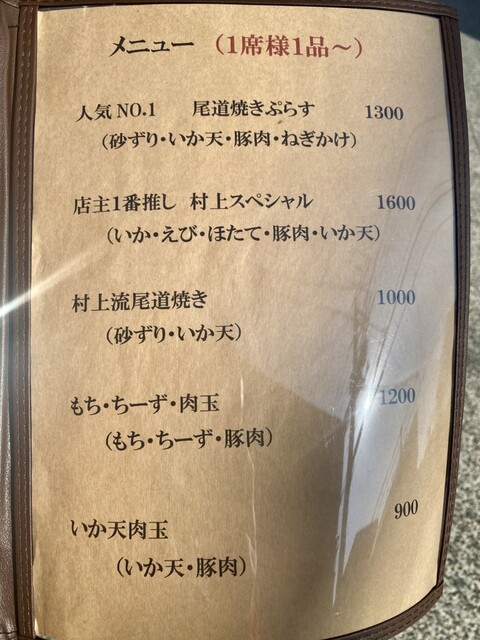 メニュー （1席様1品～）
人気NO.1 尾道焼きぷらす 1300
（砂ずり・いか天・豚肉・ねぎかけ）
店主1番推し 村上スペシャル 1600
（いか・えび・ほたて・豚肉・いか天）
村上流尾道焼き 1000
（砂ずり・いか天）
もち・ちーず・肉玉 1200
（もち・ちーず・豚肉）
いか天肉玉 900
（いか天・豚肉）